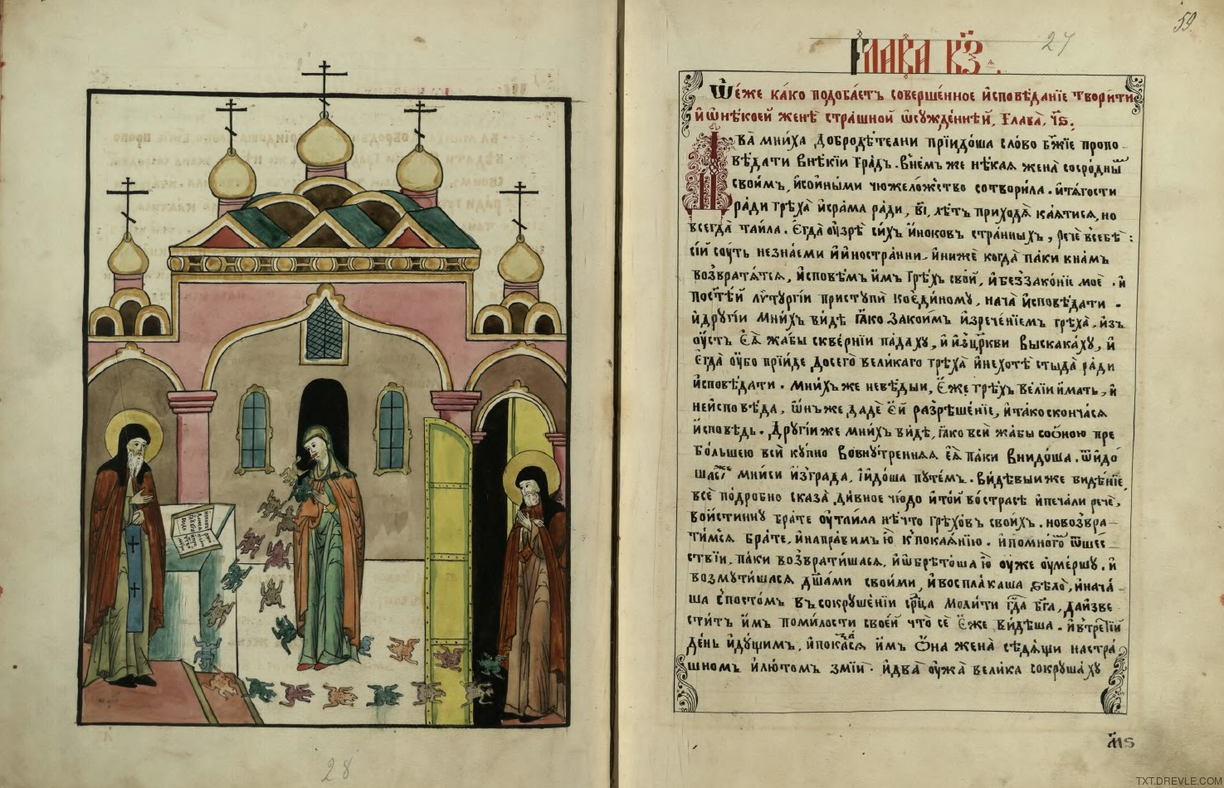 28
59
27
Глава к҃з.
Ѡ҆ е҆же ка́ко подоба́етъ соверше́нное и҆сповѣ́данїе твори́ти
и҆ ѡ҆ нѣ́коей женѣ̀ стра́шной ѡ҆сужде́ннѣй, Глава̀,
Два̀ мни́ха добродѣ́телни прїидо́ша сло́во бж҃їе пропо-
вѣ́дати в нѣ́кїи гра́дъ. в не́м же нѣ́кая жена̀ со сро́дны
свои́мъ, и҆ со и҆ны́ми чюжело́жство сотвори́ла. и҆ тѧ́гости
ра́ди грѣха̀ и҆ сра́ма ра́ди, в҃і, лѣ́тъ приходѧ̀ ка́ѧтисѧ, но
всегда̀ таи́ла. Е҆гда̀ ѹ҆зрѣ̀ си́хъ и҆́ноковъ стра́нныхъ, речѐ в себѣ̀:
сі́и су́ть незна́еми и҆ и҆ностра́нни. и҆ ниже́ когда̀ па́ки к на́мъ
возвратѧ́тсѧ, и҆сповѣ́мъ и҆́мъ грѣ́хъ сво́й, и҆ беззако́нїе моѐ. и҆
по сте́й литургі́и приступѝ ко є҆ди́ному, нача̀ и҆сповѣ́дати.
и҆ другі́и мни́хъ ви́дѣ ꙗ҆́ко за кои́мъ и҆зрече́нїемъ грѣха̀, и҆зъ
ѹ҆́стъ є҆ѧ̀ жа́бы скве́рнїи па́даху, и҆ и҆з цр҃кви выскака́ху, и҆
Е҆гда̀ ѹ҆́бо прїи́де до сего̀ вели́каго грѣха̀ и҆ не хотѣ̀ стыда̀ ра́ди
и҆сповѣ́дати. мни́хъ же невѣ́дыи, є҆́же грѣ́хъ ве́лїи и҆́мать, и҆
не и҆сповѣ́да, ѡ҆́нъ же дадѐ є҆́й разрѣше́нїе, и҆ та́ко сконча́сѧ
и҆́сповѣдь. другі́и же мни́хъ ви́дѣ, ꙗ҆́ко всѝ жа́бы со ѻ҆́ною пре
бо́льшею всѝ ку́пно во вну́тренняѧ є҆ѧ̀ па́ки внидо́ша. ѿидо
ша́ же мни́си и҆з гра́да, и҆ и҆до́ша путе́мъ. ви́дѣвыи же видѣ́нїе,
всѐ подро́бно сказа̀ ди́вное чю́до и҆ то́й во стра́сѣ и҆ печа́ли речѐ,
вои́стинну бра́те ѹ҆таи́ла нѣ́что грѣхо́въ свои́хъ. но возвра-
ти́мсѧ бра́те, и҆ напра́вимъ ю҆̀ к покаѧ́нїю. и҆ по мно́гѡ ѿшес
ствїи, па́ки возврати́шасѧ, и҆ ѡ҆брѣто́ша ю҆̀ ѹ҆же ѹ҆ме́ршу. и҆
возмути́шасѧ дш҃а́ми свои́ми, и҆ воспла́каша ѕѣлѡ̀, и҆ нача́
ша с посто́мъ в сокруше́нїи ср҃ца моли́ти гд҇а бг҃а, да и҆зве
сти́тъ и҆́мъ по ми́лости свое́й что̀ сѐ є҆́же ви́дѣша. и҆ в тре́тїй
де́нь и҆ду́щимъ, и҆ показа́сѧ и҆́мъ ѻ҆́на жена̀ сѣдѧ́щи на стра́
шномъ и҆ лю́томъ змі́и. и҆ два̀ ѹ҆́жа вели́ка сокруша́ху
м҃ѕ
TXT.DREVLE.COM